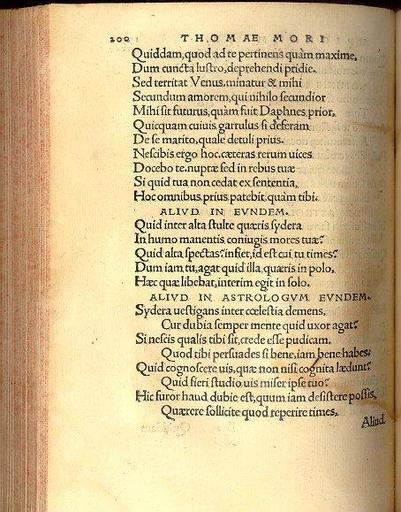 200 THOMAE MORI
Quiddam, quod ad te pertinens quàm maxime,
Dum cuncta lustro, deprehendi pridie.
Sed territat Venus, minatur & mihi
Secundum amorem, qui nihilo secundior
Mihi sit futurus, quàm fuit Daphnes prior,
Quicquam cuiuis garrulus si deferam
De se marito, quale detuli prius.
Nescibis ergo hoc, cæteras rerum uices
Docebo te, nuptæ sed in rebus tuæ
Si quid tua non cedat ex sententia,
Hoc omnibus prius patebit, quàm tibi.
ALIVD IN EVNDEM.
Quid inter alta stulte quæris sydera
In humo manentis coniugis mores tuæ?
Quid alta spectas? infiet, id est cui tu times?
Dum iam tu, agat quid illa, quæris in polo,
Hæc quæ libebat, interim egit in solo.
ALIVD IN ASTROLOGVM EVNDEM.
Sydera uestigans inter cœlestia demens,
Cur dubia semper mente quid uxor agat?
Si nescis qualis tibi sit, crede esse pudicam.
Quod tibi persuades si bene, iam bene habes.
Quid cognoscere uis, quæ non nisi cognita lædunt?
Quid fieri studio uis miser ipse tuo?
Hic furor haud dubie est, quum iam desistere possis,
Quærere sollicite quod reperire times.
Aliud